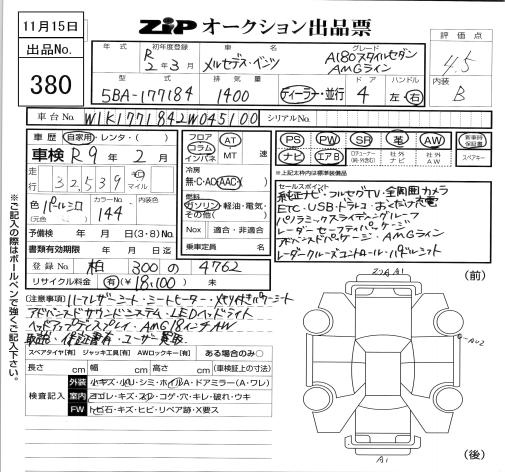 11月15日
出品No.
380
ZIP オークション出品票
評価点
4.5
内装
B
年式
初年度登録
R 2年3月
車名
メルセデス・ベンツ
グレード
A180スタイルセダン
AMGライン
型式
5BA-177184
排気量
1400
ディーラー・並行
ドア
4
ハンドル
左・右
車台No.
W1K1771842W045100
シリアルNo.
車歴 自家用・レンタ・( )
車検 R9年 2月
走行 32,539 キロ マイル
色 パールシロ
(元色 )
カラーNo.
144
内装色
予備検 年 月 日(3・8)No.
書類有効期限 年 月 日迄
登録No. 柏 300 の 4762
リサイクル料金 有 ¥18,100 未
フロア コラム インパネ
AT
MT 速
冷房
無・C・AC・AAC
燃料
ガソリン・軽油・電気・その他( )
Nox 適合・非適合
乗車定員 名
PS PW SR 革 AW
ナビ エアB
社外ナビ 社外AW
新車時保証書
スペアキー
※上記太枠内は標準装備品
セールスポイント
純正ナビ・フルセグTV・全周囲カメラ
ETC・USB・ドラレコ・おくだけ充電
パノラミックスライディングルーフ
レーダーセーフティパッケージ
アドバンスドパッケージ・AMGライン
レーダークルーズコントロール・パドルシフト
[注意事項] ハーフレザーシート・シートヒーター・メモリ付きパワーシート
アドバンスドサウンドシステム・LEDヘッドライト
ヘッドアップディスプレイ・AMG18インチAW
取説・保証書有・ユーザー買取
スペアタイヤ[有] ジャッキ工具[有] AWロックキー[有] ある場合のみ○
長さ cm 幅 cm 高さ cm (車検証上の寸法)
検査記入
外装 小キズ・小凹・シミ・ホイルA・ドアミラー(A・ワレ)
室内 ヨゴレ・キズ・スレ・コゲ・穴・キレ・破れ・ウキ
FW トビ石・キズ・ヒビ・リペア跡・X要ス
※ご記入の際はボールペンで強くご記入下さい。
(前)
A1
(後)
A1